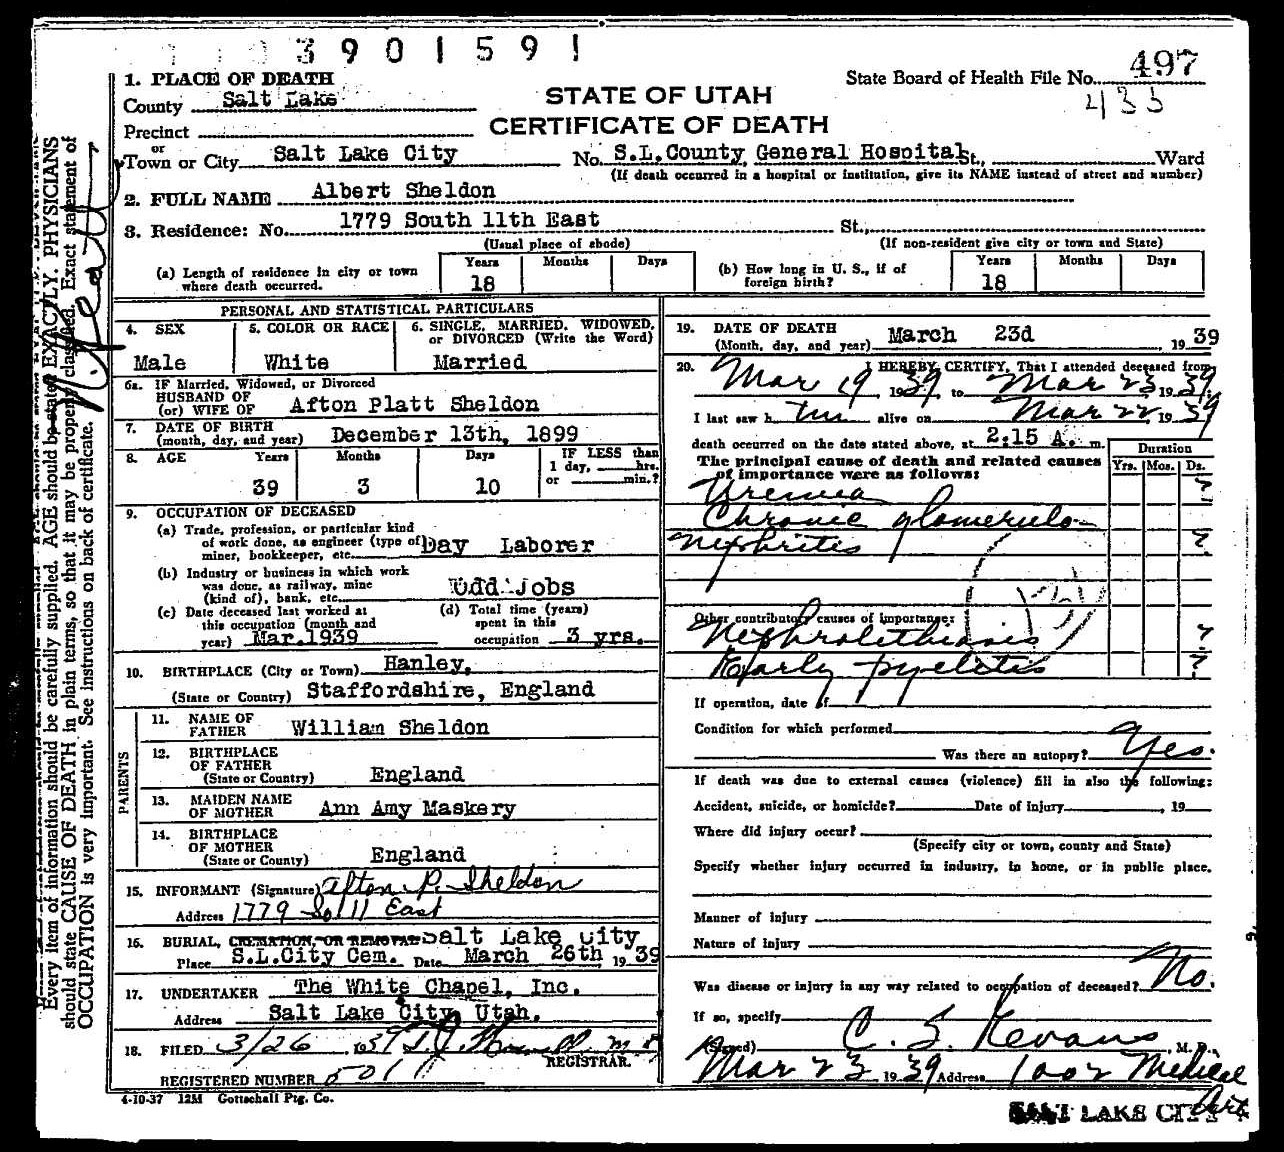 3901591
State Board of Health File No. 497
433
1. PLACE OF DEATH
County Salt Lake
STATE OF UTAH
CERTIFICATE OF DEATH
Precinct
or
Town or City Salt Lake City No. S.L.County General Hospital St., Ward
(If death occurred in a hospital or institution, give its NAME instead of street and number)
2. FULL NAME Albert Sheldon
3. Residence: No. 1779 South 11th East St.,
(Usual place of abode) (If non-resident give city or town and State)
(a) Length of residence in city or town where death occurred. Years 18 Months Days
(b) How long in U. S., if of foreign birth? Years 18 Months Days
PERSONAL AND STATISTICAL PARTICULARS
4. SEX Male
5. COLOR OR RACE White
6. SINGLE, MARRIED, WIDOWED, or DIVORCED (Write the Word) Married
6a. IF Married, Widowed, or Divorced
HUSBAND OF
(or) WIFE OF Afton Platt Sheldon
7. DATE OF BIRTH
(month, day, and year) December 13th, 1899
8. AGE Years 39 Months 3 Days 10 IF LESS than 1 day, hrs. or min.?
9. OCCUPATION OF DECEASED
(a) Trade, profession, or particular kind
of work done, as engineer (type of)
miner, bookkeeper, etc. Day Laborer
(b) Industry or business in which work
was done, as railway, mine
(kind of), bank, etc. Odd Jobs
(c) Date deceased last worked at
this occupation (month and
year) Mar.1939
(d) Total time (years)
spent in this
occupation 3 yrs.
10. BIRTHPLACE (City or Town) Hanley,
(State or Country) Staffordshire, England
PARENTS
11. NAME OF FATHER William Sheldon
12. BIRTHPLACE OF FATHER
(State or Country) England
13. MAIDEN NAME OF MOTHER Ann Amy Maskery
14. BIRTHPLACE OF MOTHER
(State or County) England
15. INFORMANT (Signature) Afton P. Sheldon
Address 1779 So 11 East
16. BURIAL, CREMATION, OR REMOVAL Salt Lake City
Place S.L.City Cem. Date March 26th, 1939
17. UNDERTAKER The White Chapel, Inc.
Address Salt Lake City, Utah.
18. FILED 3/26 1939
REGISTRAR.
REGISTERED NUMBER 501
19. DATE OF DEATH
(Month, day, and year) March 23d 1939
20. I HEREBY CERTIFY, That I attended deceased from
Mar 19 1939, to Mar 23 1939.
I last saw him alive on Mar 22, 1939
death occurred on the date stated above, at 2:15 A. m.
The principal cause of death and related causes
of importance were as follows:
Duration
Yrs. Mos. Ds.
Uremia ?
Chronic glomerulo-
nephritis ?
Other contributory causes of importance:
Nephrolithiasis ?
Early pyelitis ?
If operation, date of
Condition for which performed
Was there an autopsy? Yes.
If death was due to external causes (violence) fill in also the following:
Accident, suicide, or homicide? Date of injury , 19
Where did injury occur?
(Specify city or town, county and State)
Specify whether injury occurred in industry, in home, or in public place.
Manner of injury
Nature of injury
Was disease or injury in any way related to occupation of deceased? No.
If so, specify
(Signed) C. S. Kevans M. D.
Mar 23 1939 Address 1002 Medical Art
SALT LAKE CITY
4-10-37 12M Gottschall Ptg. Co.
Every item of information should be carefully supplied. AGE should be stated EXACTLY. PHYSICIANS
should state CAUSE OF DEATH in plain terms, so that it may be properly classified. Exact statement of
OCCUPATION is very important. See instructions on back of certificate.